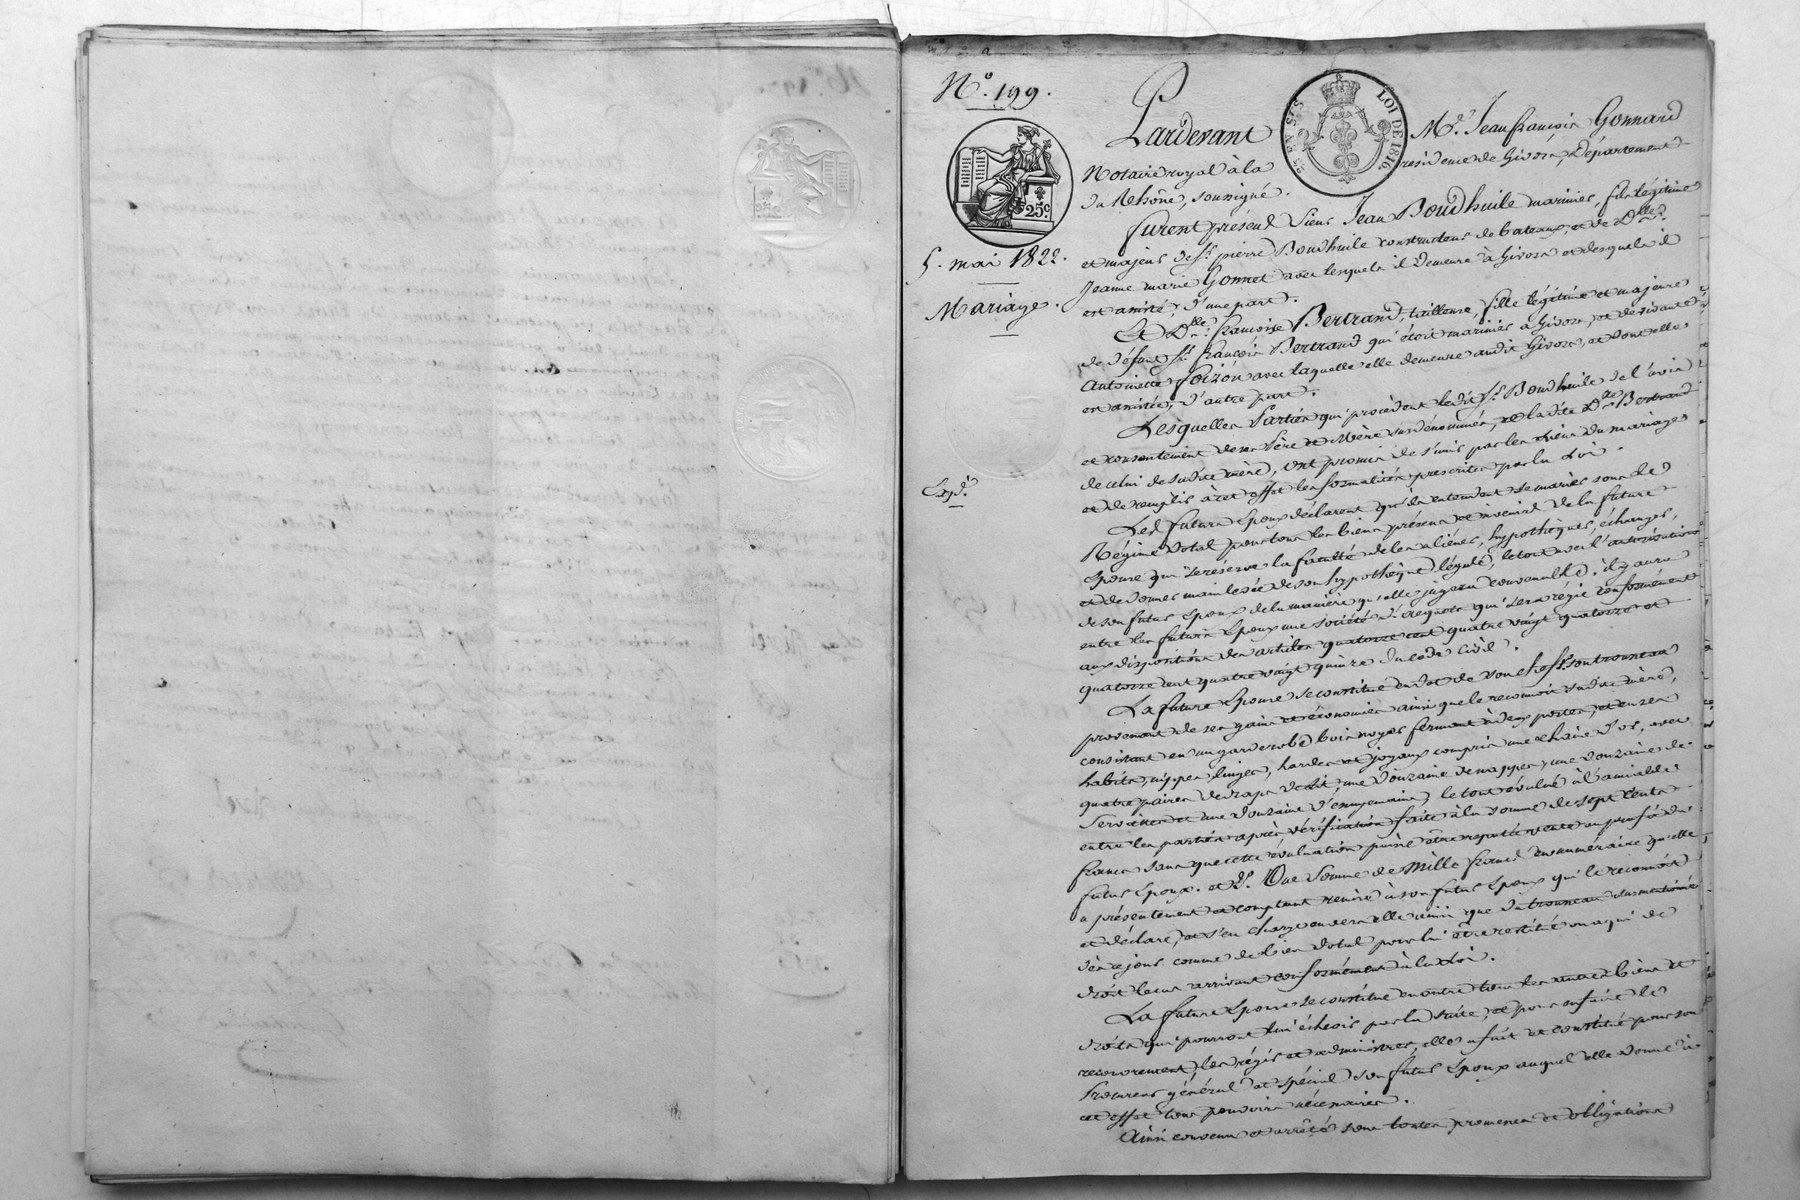 N.º 199.
25c.
5. mai 1822.
Mariage.
Expé.
25 EN SUS
LOI DE 1816.
Pardevant Me. Jean françois Gonnard
Notaire royal à la résidence de Givors, Département
du Rhône, soussigné.
furent présens Sieur Jean Boudhuile marinier, fils légitime
et majeur de Sr. pierre Boudhuile constructeur de bateaux, et de Dlle.
Jeanne marie Gonnet avec lesquels il demeure à Givors et desquels il
est assisté, d'une part.
Et Dlle. françoise Bertrand, tailleuse, fille légitime et majeure
de défunt Sr. françois Bertrand qui étoit marinier à Givors, et de vivante
Antoinette Foizon avec laquelle elle demeure audit Givors, et dont elle
est assistée, d'autre part.
Lesquelles Parties qui procèdent ledit Sr. Boudhuile de l'avis
et consentement de ses Père et Mère susdénommés, et ladite Dlle. Bertrand
de celui de sadite mère, ont promis de s'unir par les liens du mariage
et de remplir à cet effet les formalités prescrites par la Loi.
Les futurs Epoux déclarent qu'ils entendent se marier sous le
Régime Dotal pour tous les biens présens et à venir de la future
Epouse qui se réserve la faculté de les aliéner, hypothéquer, échanger,
et de donner mainlevée de son hypothèque légale, le tout avec l'autorisation
de son futur Epoux de la manière qu'elle jugera convenable; il y aura
entre les futurs Epoux une société d'acquets qui sera régie conformément
aux dispositions des articles quatorze cent quatre vingt quatorze et
quatorze cent quatre vingt quinze du Code Civil.
La future Epouse se constitue en dot de son chef: 1º. son trousseau
provenant de ses gains et économies ainsi que le reconnoit sadite mère,
consistant en un garderobe bois noyer fermant à deux portes, et en ses
habits, nippes, linges, hardes et joyaux compris une chaine d'or, avec
quatre paires de draps de lit, une douzaine de nappes, une douzaine de
Serviettes et une douzaine d'essuyemains, le tout évalué à l'amiable
entre les parties après vérification faite à la somme de sept cents
francs sans que cette évaluation puisse être reputée vente au profit du
futur Epoux. et 2º. Une Somme de Mille francs en numéraire qu'elle
a présentement et comptant remise à son futur Epoux qui le reconnoît
et déclare, et s'en charge envers elle ainsi que du trousseau susmentionné
dès ce jour comme de bien dotal pour lui être restitué ou à qui de
droit le cas arrivant conformément à la Loi.
La future Epouse se constitue en outre tous les autres biens et
droits qui pourront lui échoir par la suite, et pour en faire le
recouvrement, les régir et administrer, elle a fait et constitué pour son
Procureur général et spécial son futur Epoux auquel elle donne à
cet effet tous pouvoirs nécessaires.
Ainsi convenu et arrêté sous toutes promesses et obligations